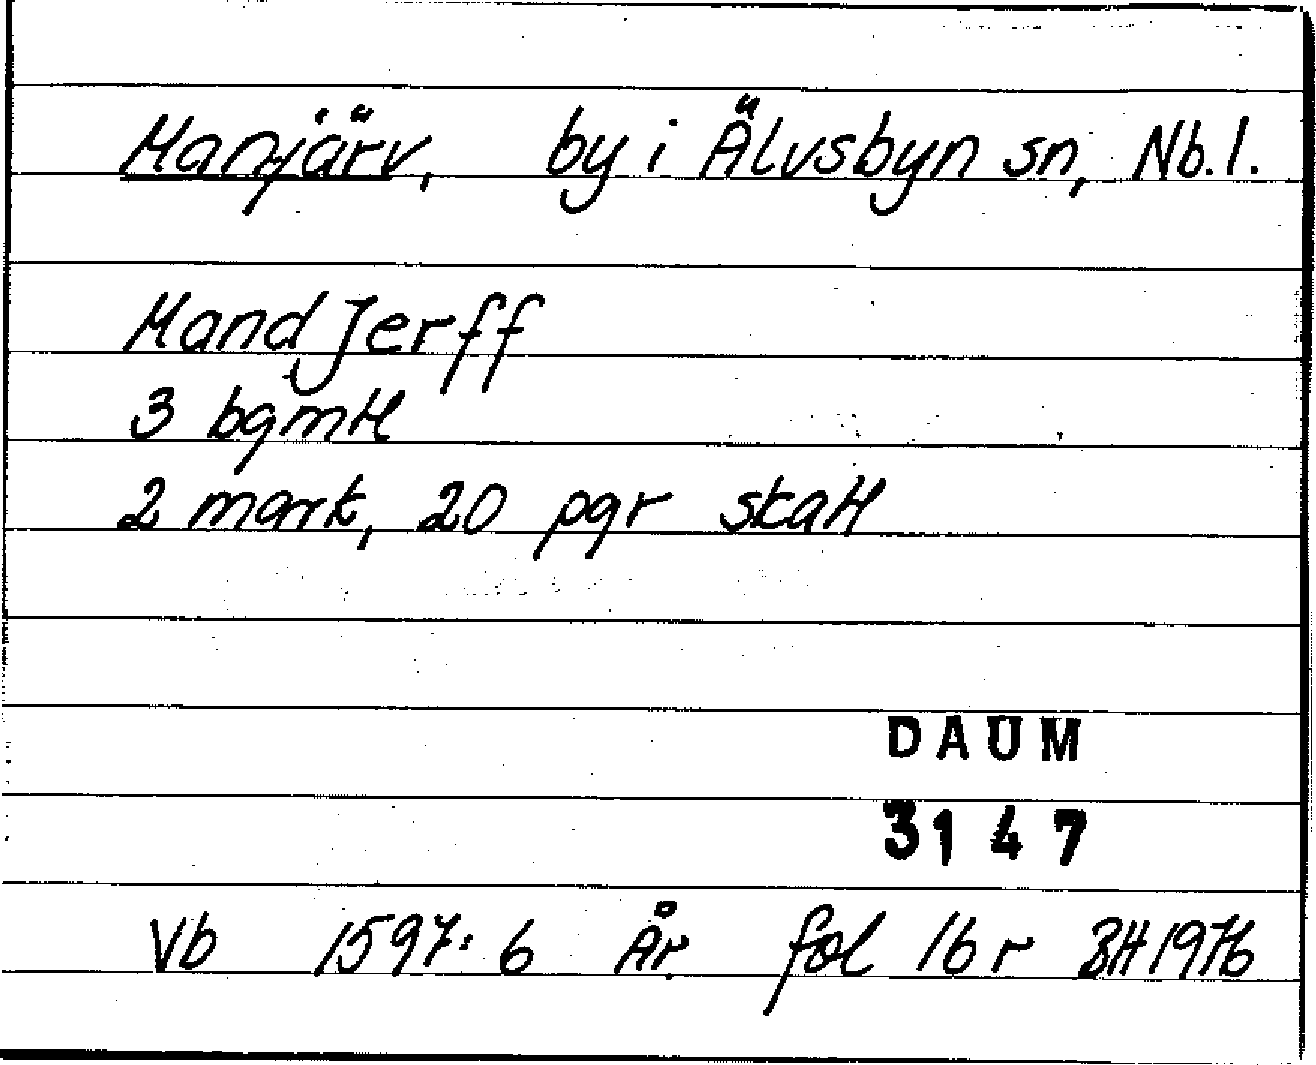 Manjärv, by i Älvsbyn sn, Nb.l.
Mand Jerff
3 bgmtl
2 mark, 20 pgr skatt
DAUM
3147
Vb 1597:6 År fol 16r BH 1976